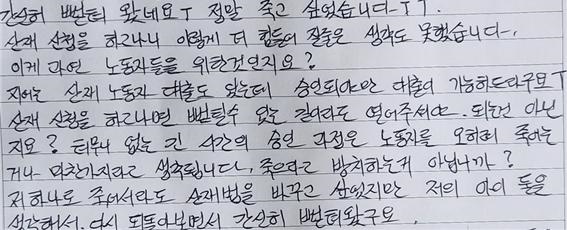 간신히 뻗텨 왔네요ㅜ 정말 죽고 싶었습니다ㅜㅜ.
산재 신청을 하고나니 이렇게 더 힘들어 질줄은 생각도 못했습니다.
이게 과연 노동자들을 위한것인지요?
지어는 산재 노동자 대출도 있는데 승인되야만 대출이 가능하드라구요ㅜ
산재 신청을 하고나면 뻗틸수 있는 길이라도 열어주셔야 되는건 아닌
지요? 터무니 없는 긴 시간의 승인 과정은 노동자를 오히려 죽이는
거나 마찬가지라고 생각됩니다. 죽으라고 방치하는게 아닙니까?
저 하나로 죽어서라도 산재법을 바꾸고 싶었지만 저의 아이 둘을
생각해서 다시 되돌아보면서 간신히 뻗텨왔구요.